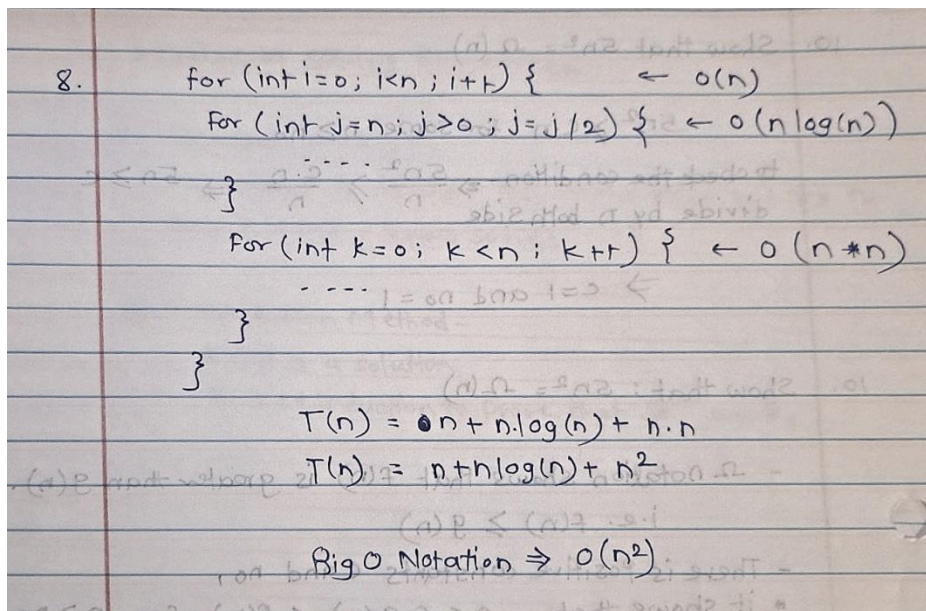 8. for (int i=0; i<n; i++) { ← O(n)
for (int j=n; j>0; j=j/2) { ← O(n log(n))
.....
}
for (int k=0; k<n; k++) { ← O(n*n)
.....
}
}
T(n) = n + n.log(n) + n.n
T(n) = n+nlog(n)+ n²
Big O Notation ⇒ O(n²)